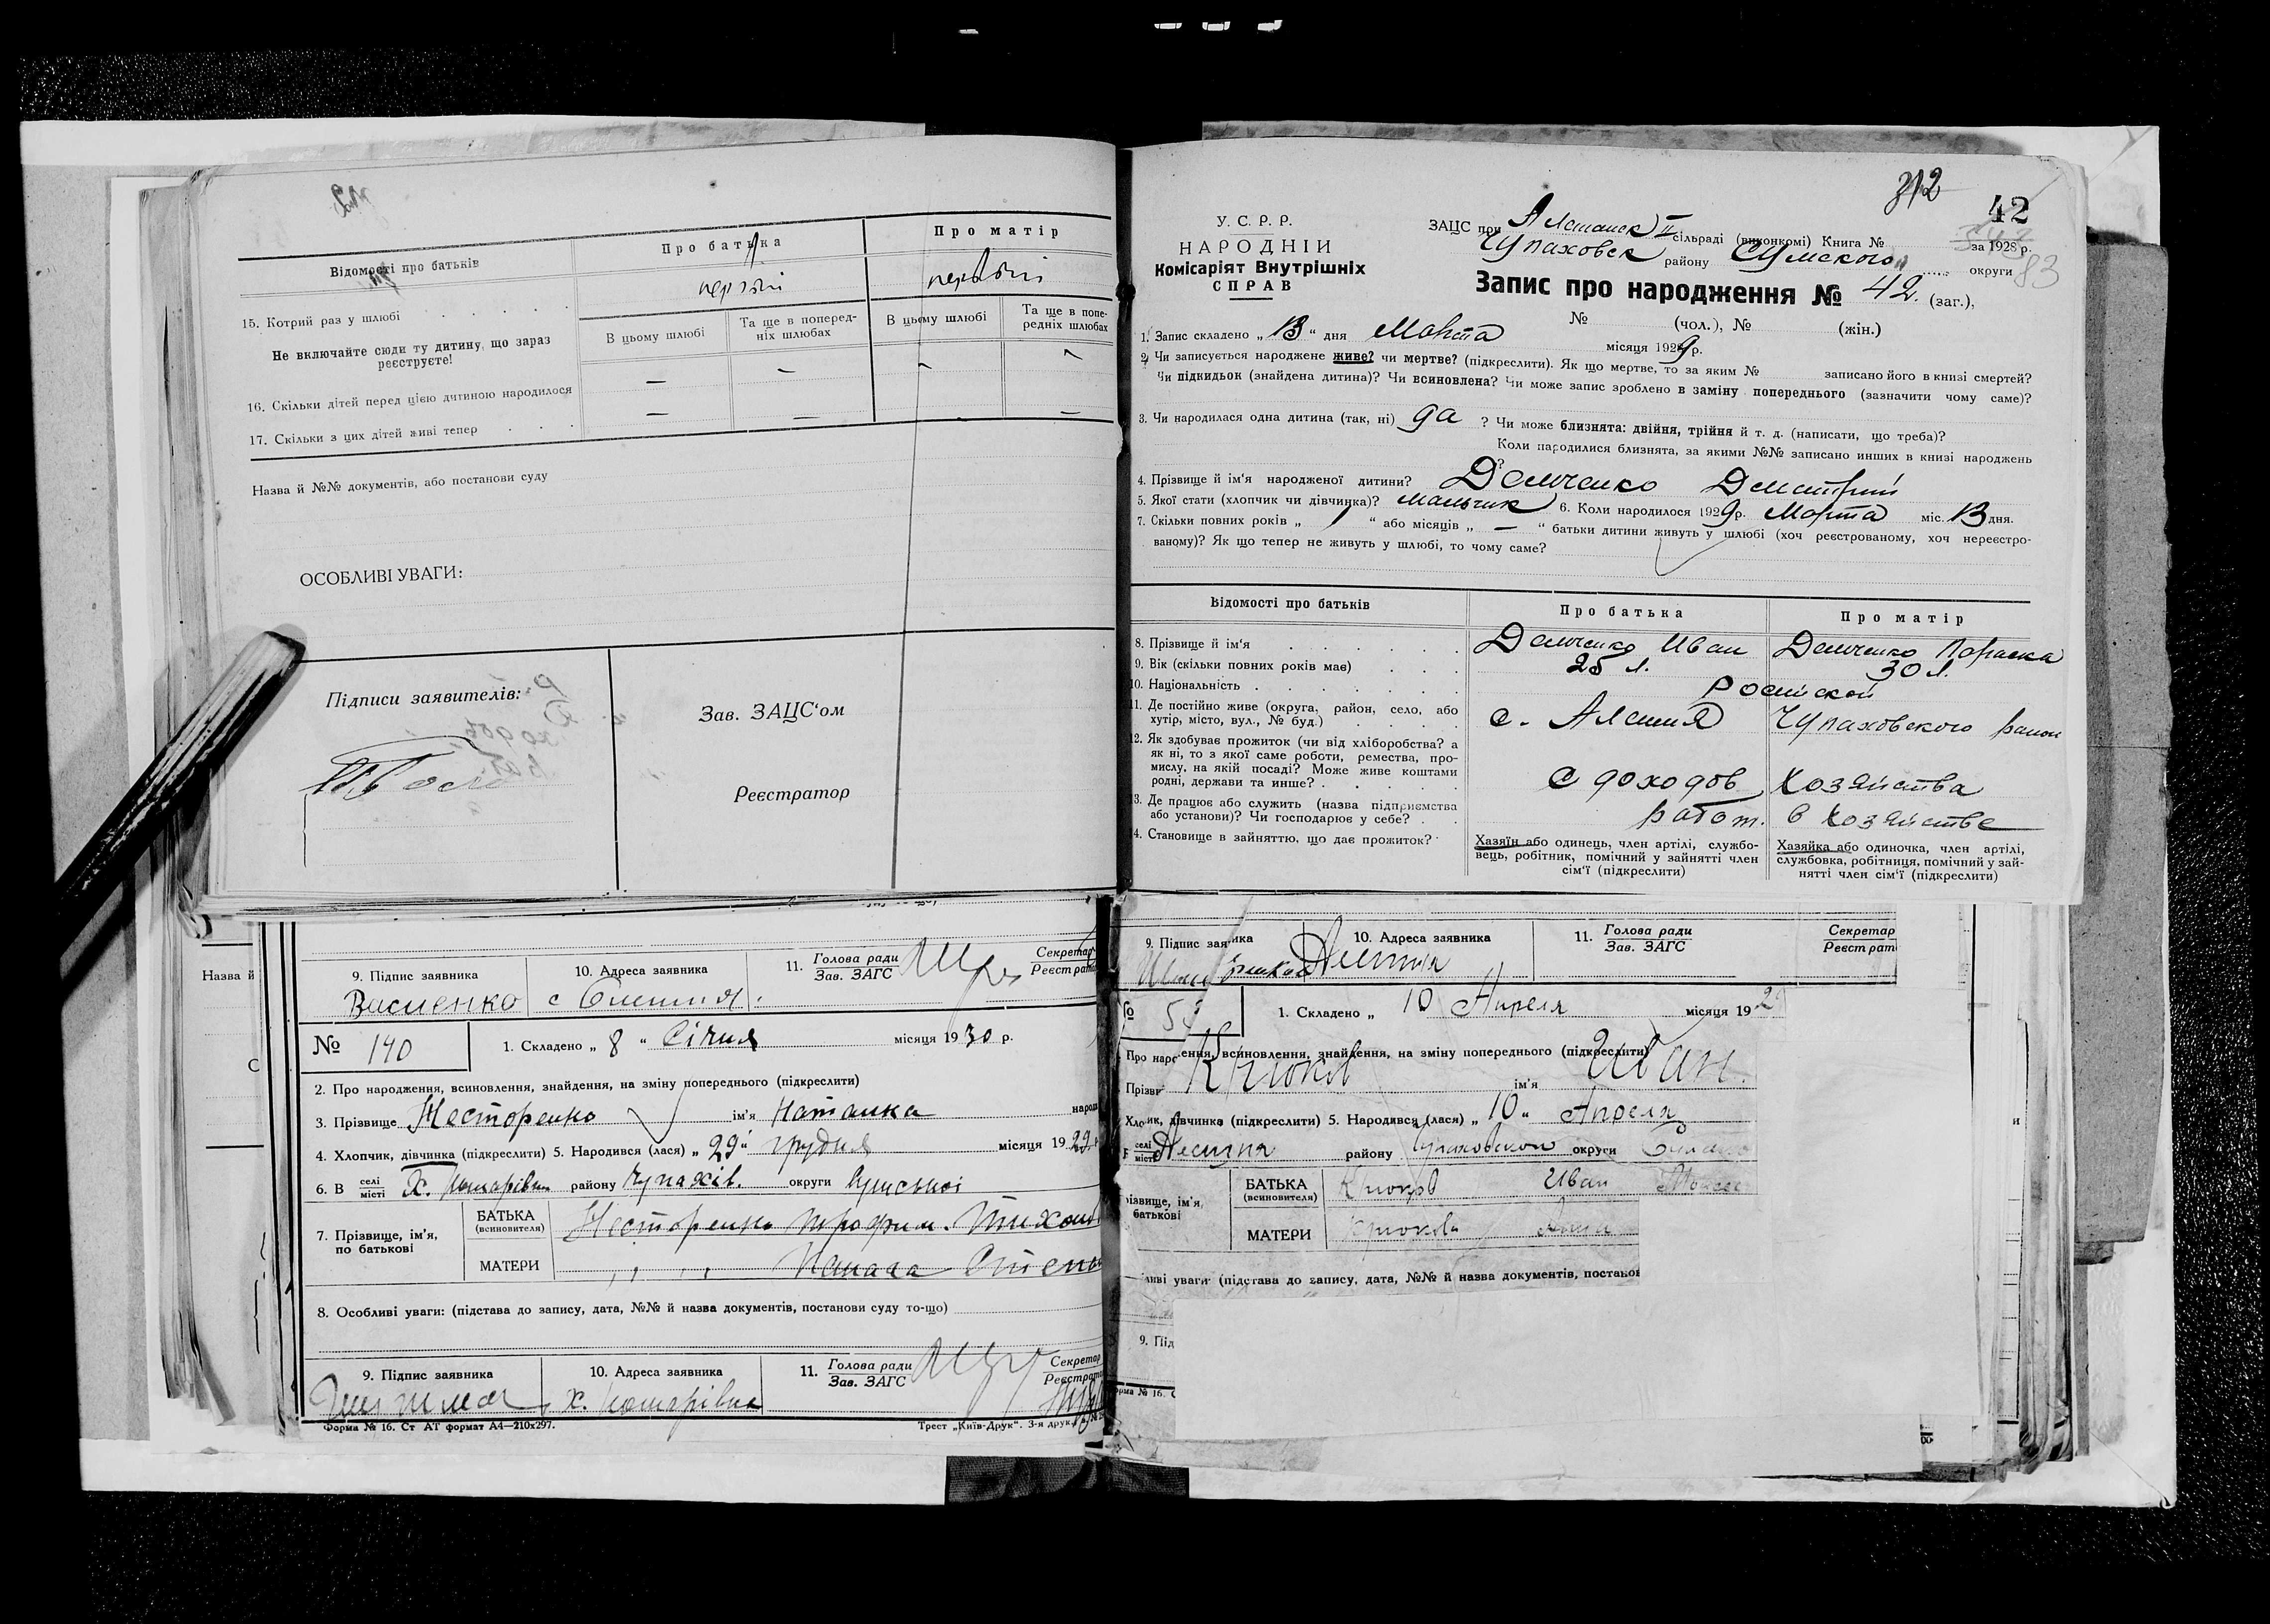 Відомості про батьків
Про батька
Про матір
15. Котрий раз у шлюбі
Не включайте сюди ту дитину, що зараз
реєструєте!
В цьому шлюбі
Та ще в поперед-
ніх шлюбах
В цьому шлюбі
Та ще в попе-
редніх шлюбах
16. Скільки дітей перед цією дитиною народилося
— —
17. Скільки з цих дітей живі тепер
— — —
Назва й №№ документів, або постанови суду
ОСОБЛИВІ УВАГИ:
Підписи заявителів:
Зав. ЗАЦС'ом
Реєстратор
312
42
83
У. С. Р. Р.
НАРОДНІЙ
Комісаріят Внутрішніх
СПРАВ
ЗАЦС при II сільраді (виконкомі) Книга № за 1928 р.
Чупаховск району Сумского округи
Запис про народження № 42. (заг.),
№ (чол.), № (жін.)
1. Запис складено „ 13 “ дня Марта місяця 1929 р.
2. Чи записується народжене живе? чи мертве? (підкреслити). Як що мертве, то за яким № записано його в книзі смертей?
Чи підкидьок (знайдена дитина)? Чи всиновлена? Чи може запис зроблено в заміну попереднього (зазначити чому саме)?
3. Чи народилася одна дитина (так, ні) да ? Чи може близнята: двійня, трійня й т. д. (написати, що треба)?
Коли народилися близнята, за якими №№ записано инших в книзі народжень
?
4. Прізвище й ім'я народженої дитини? Демченко Дмитрий
5. Якої стати (хлопчик чи дівчинка)? мальчик 6. Коли народилося 1929 р. Марта міс. 13 дня.
7. Скільки повних років „ 1 “ або місяців „ — “ батьки дитини живуть у шлюбі (хоч реєстрованому, хоч нереєстро-
ваному)? Як що тепер не живуть у шлюбі, то чому саме?
Відомості про батьків
Про батька
Про матір
8. Прізвище й ім'я
Демченко Иван
Демченко Параска
9. Вік (скільки повних років має)
25 л.
30 л.
10. Національність
11. Де постійно живе (округа, район, село, або
хутір, місто, вул., № буд.)
с. Алешня
Чупаховского район
12. Як здобуває прожиток (чи від хліборобства? а
як ні, то з якої саме роботи, ремества, про-
мислу, на якій посаді? Може живе коштами
родні, держави та инше?
С доходов
Хозяйства
13. Де працює або служить (назва підприємства
або установи)? Чи господарює у себе?
работ.
в хозяйстве
14. Становище в зайняттю, що дає прожиток?
Хазяїн або одинець, член артілі, службо-
вець, робітник, помічний у зайнятті член
сім'ї (підкреслити)
Хазяйка або одиночка, член артілі,
службовка, робітниця, помічний у зай-
нятті член сім'ї (підкреслити)
Назва й
9. Підпис заявника
10. Адреса заявника
11. Голова ради
Зав. ЗАГС
Секретар
Василенко
№ 140
1. Складено „ 8 “ Січня місяця 1930 р.
2. Про народження, всиновлення, знайдення, на зміну попереднього (підкреслити)
3. Прізвище Несторенко ім'я Наталка
4. Хлопчик, дівчинка (підкреслити) 5. Народився (лася) „ 29 “ грудня місяця 1929
6. В селі
місті Х. Комарівка району Чупахів. округи Сумської
7. Прізвище, ім'я,
по батькові
БАТЬКА
(всиновителя)
Несторенко Трофим
МАТЕРИ
8. Особливі уваги: (підстава до запису, дата, №№ й назва документів, постанови суду то-що)
9. Підпис заявника
10. Адреса заявника
11. Голова ради
Зав. ЗАГС
Секретар
Х. Комарівка
Форма № 16. Ст АТ формат А4—210х297.
Трест „Київ-Друк“. 3-я друк.
10. Адреса заявника
11. Голова ради
Зав. ЗАГС
Секретар
1. Складено „ 10 Апреля місяця 19 29
всиновлення, знайдення, на зміну попереднього (підкреслити)
Крюков ім'я Иван
дівчинка (підкреслити) 5. Народився (лася) „ 10 “ Апреля
району округи
БАТЬКА
(всиновителя)
Крюков Иван
МАТЕРИ
Крюкова Анна
уваги (підстава до запису, дата, №№ й назва документів,